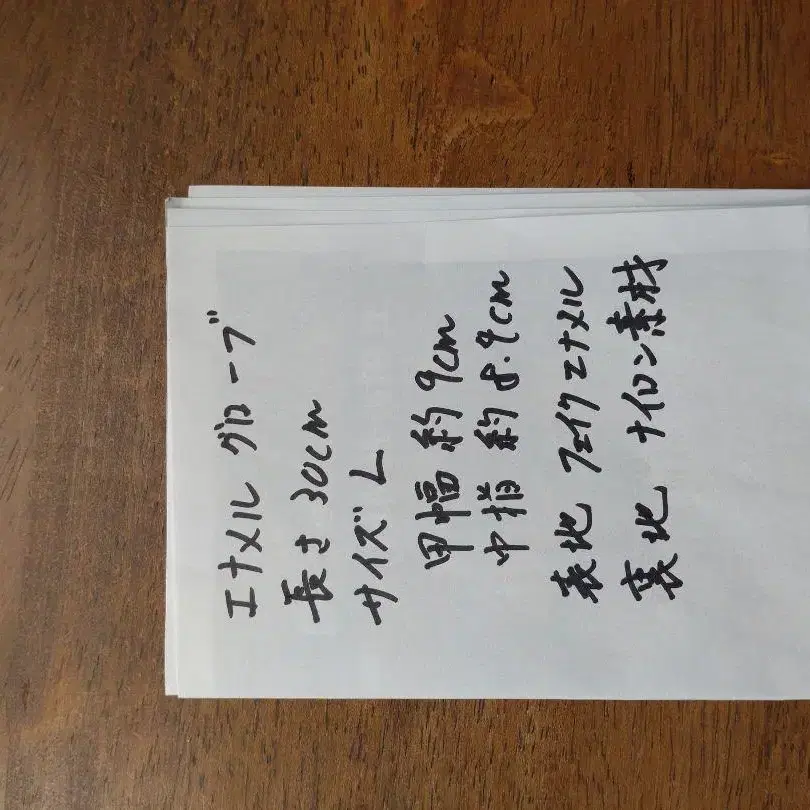 エナメル グローブ
長さ 30cm
サイズ L
甲幅 約 9cm
中指 約 8.9cm
表地 フェイクエナメル
裏地 ナイロン素材